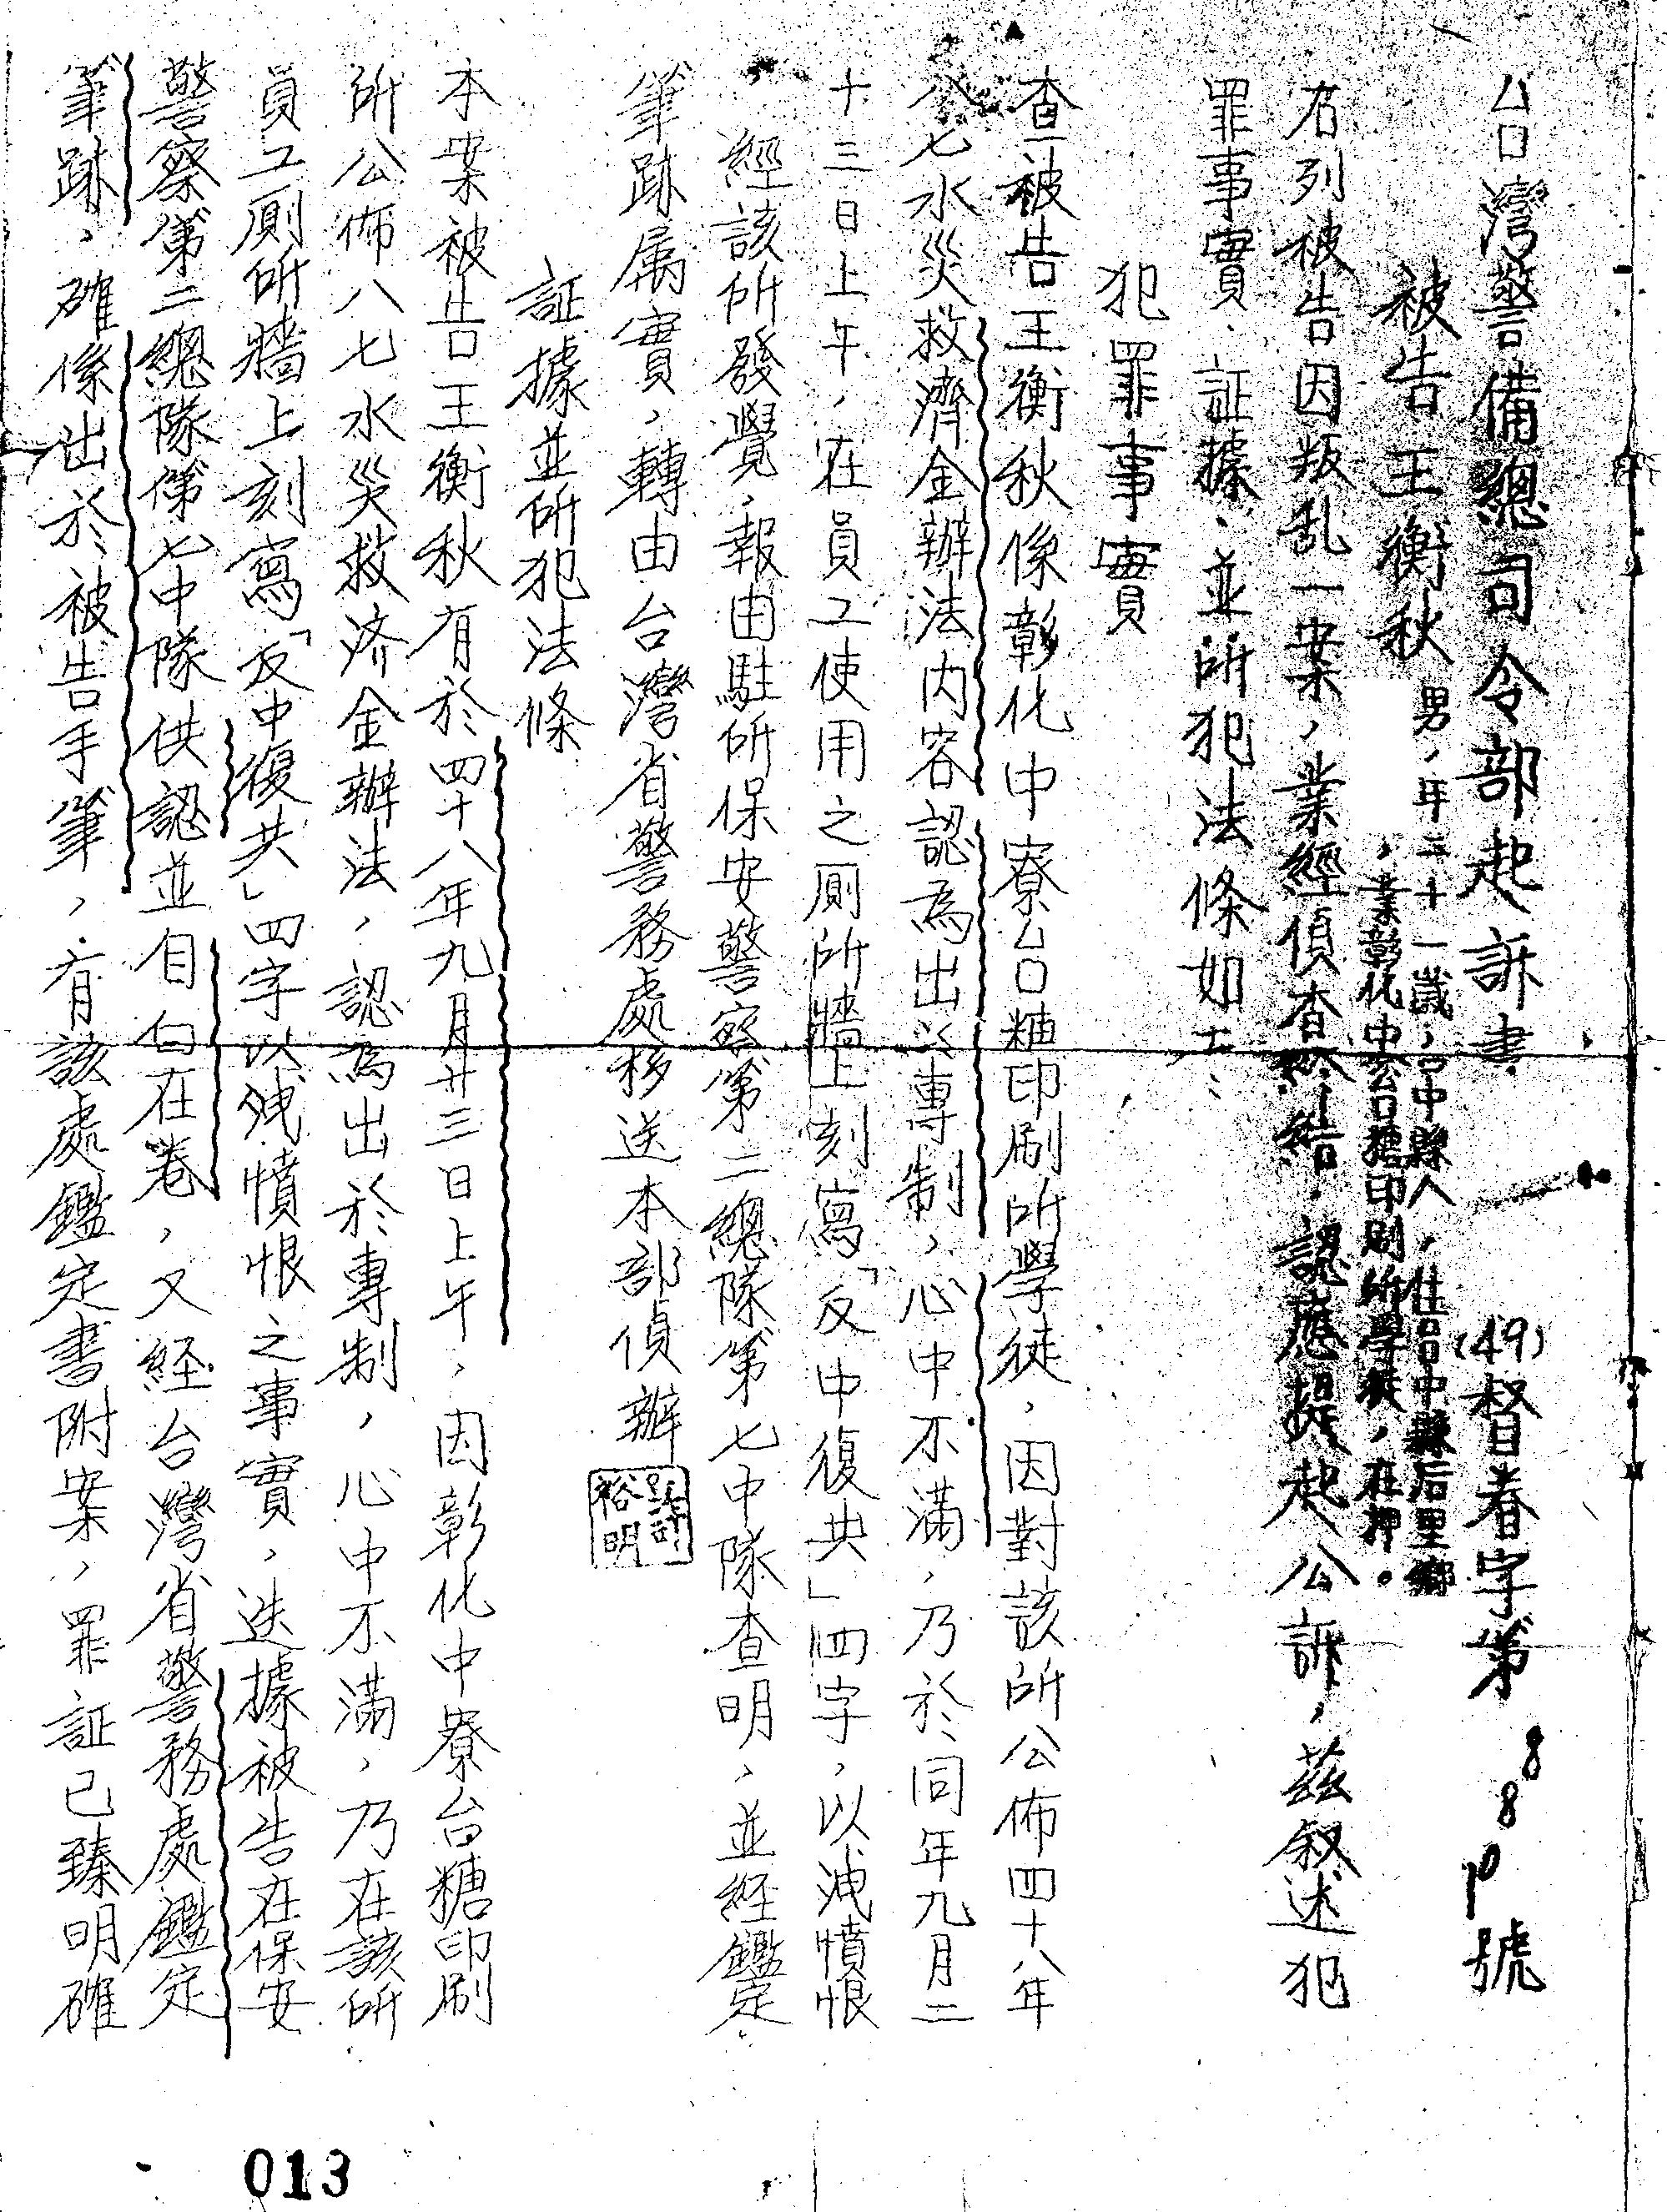 台灣警備總司令部起訴書 (49)督春字第 號
被告王衡秋 男,年三十一歲,台中縣人,住台中縣后里鄉
,業彰化中寮台糖印刷所學徒,在押。
右列被告因叛乱一案,業經偵查終結,認應提起公訴,茲叙述犯
罪事實、証據、並所犯法條如左:
犯罪事實
查被告王衡秋係彰化中寮台糖印刷所學徒,因對該所公佈四十八年
八七水災救濟金辦法內容認為出以專制,心中不滿,乃於同年九月二
十三日上午,在員工使用之厠所牆上刻寫「反中復共」四字,以洩憤恨
,經該所發覺,報由駐所保安警察第二總隊第七中隊查明,並經鑑定
筆跡屬實,轉由台灣省警務處移送本部偵辦
許裕明
証據並所犯法條
本案被告王衡秋有於四十八年九月廿三日上午,因彰化中寮台糖印刷
所公佈八七水災救济金辦法,認為出於專制,心中不滿,乃在該所
員工厠所牆上刻寫「反中復共」四字以洩憤恨之事實,迭據被告在保安
警察第二總隊第七中隊供認並自白在卷,又経台灣省警務處鑑定
筆跡,確係出於被告手筆,有該處鑑定書附案,罪証已臻明確
013